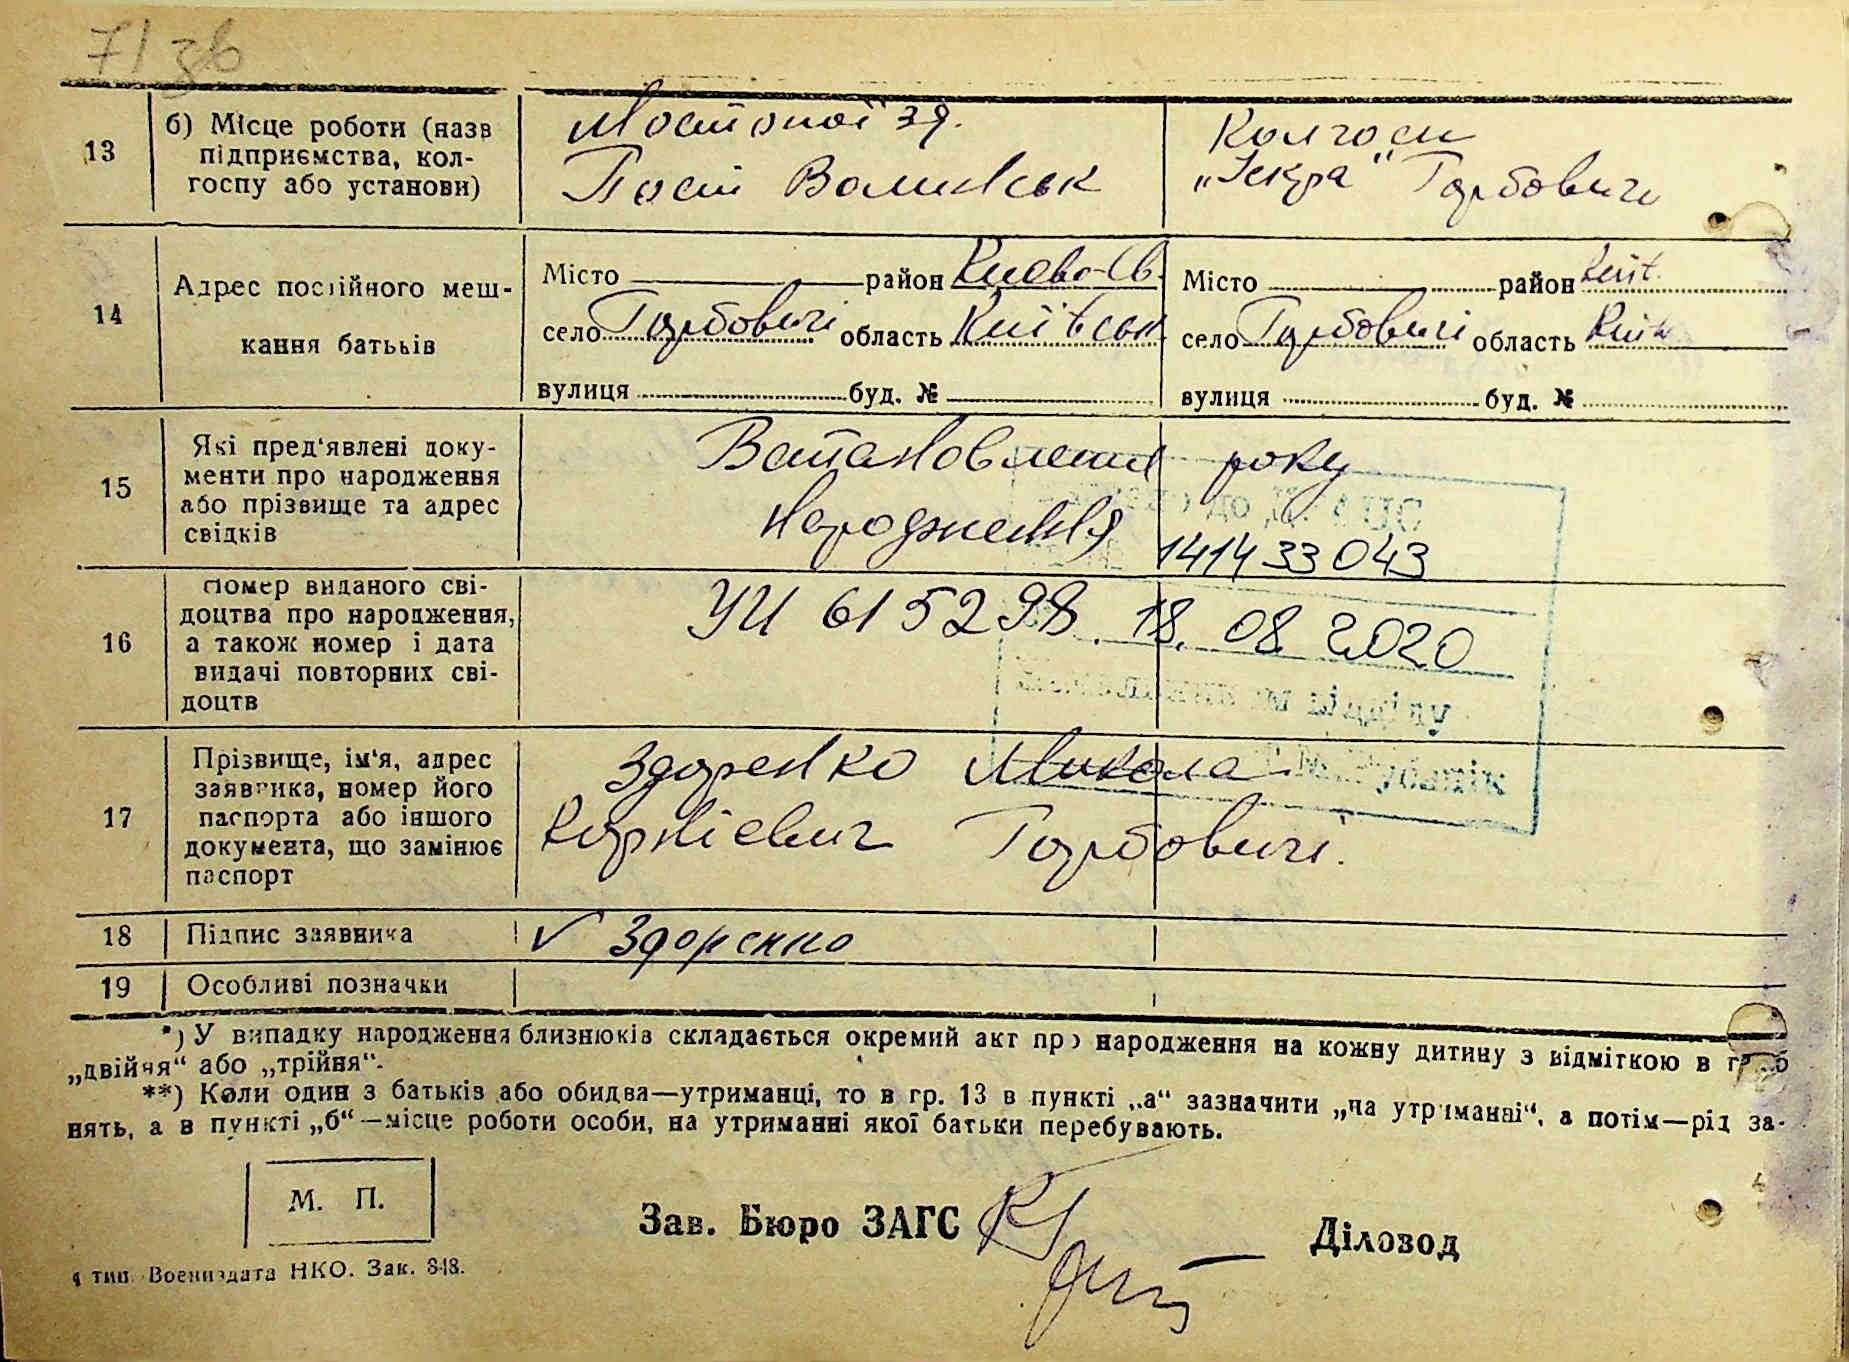 71 зв
13
б) Місце роботи (назв
підприємства, кол-
госпу або установи)
Пост Волинськ
Колгосп
„Іскра“ Горбовичі
14
Адрес постійного меш-
кання батьків
Місто район Києво-Св.
село Горбовичі область Київськ
вулиця буд. №
Місто район
село Горбовичі область Київ
вулиця буд. №
15
Які пред‘явлені доку-
менти про народження
або прізвище та адрес
свідків
Встановлення року
народження
141433043
16
Помер виданого сві-
доцтва про народження,
а також номер і дата
видачі повторних сві-
доцтв
УИ 615298. 18. 08. 2020
17
Прізвище, ім‘я, адрес
заявника, номер його
паспорта або іншого
документа, що замінює
паспорт
Здоренко Микола
Корнієвич Горбовичі.
18
Підпис заявника
V Здоренко
19
Особливі позначки
*) У випадку народження близнюків складається окремий акт про народження на кожну дитину з відміткою в гр. 6
„двійня“ або „трійня“.
**) Коли один з батьків або обидва—утриманці, то в гр. 13 в пункті „а“ зазначити „на утриманні“, а потім—рід за-
нять, а в пункті „б“—місце роботи особи, на утриманні якої батьки перебувають.
М. П.
Зав. Бюро ЗАГС
Діловод
4 тип. Воениздата НКО. Зак. 848.